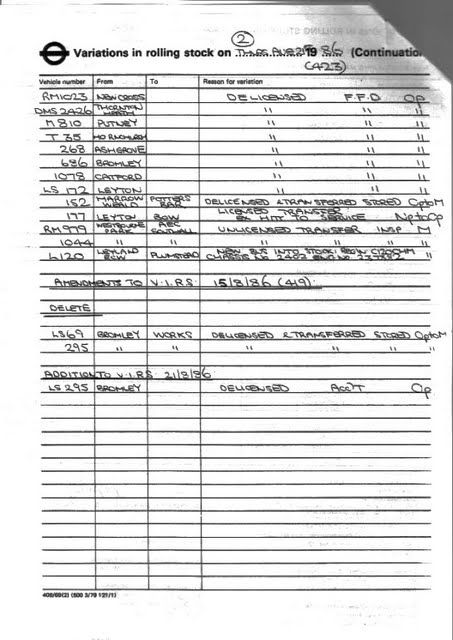 2
Variations in rolling stock on THURS AUG 21 19 86 (Continuation
(423)
Vehicle number From To Reason for variation
RM1023 NEW CROSS DELICENSED F.F.D Op
DMS 2426 THORNTON HEATH " " "
M 810 PUTNEY " " "
T 35 HORNCHURCH " " "
268 ASHGROVE " " "
686 BROMLEY " " "
1078 CATFORD " " "
LS 172 LEYTON " " "
152 HARROW WEALD POTTERS BAR DELICENSED & TRANSFERRED STORED OptoM
177 LEYTON BOW LICENSED TRANSFER EX MITT TO SERVICE NptoOp
RM979 WESTBOURNE PARK AEC SOUTHALL UNLICENSED TRANSFER INSP M
1044 " " " " "
L120 LEYLAND ECW PLUMSTEAD NEW BUS INTO STOCK REG No C120CHM CHASSIS No 2402 ENG No
AMENDMENTS TO V.I.RS. 15/8/86 (419).
DELETE
LS69 BROMLEY WORKS DELICENSED & TRANSFERRED STORED OptoM
295 " " " " " "
ADDITION TO V.I.RS. 21/8/86
LS 295 BROMLEY DELICENSED ACC'T Op
408/69(2) (500 3/79 121/1)